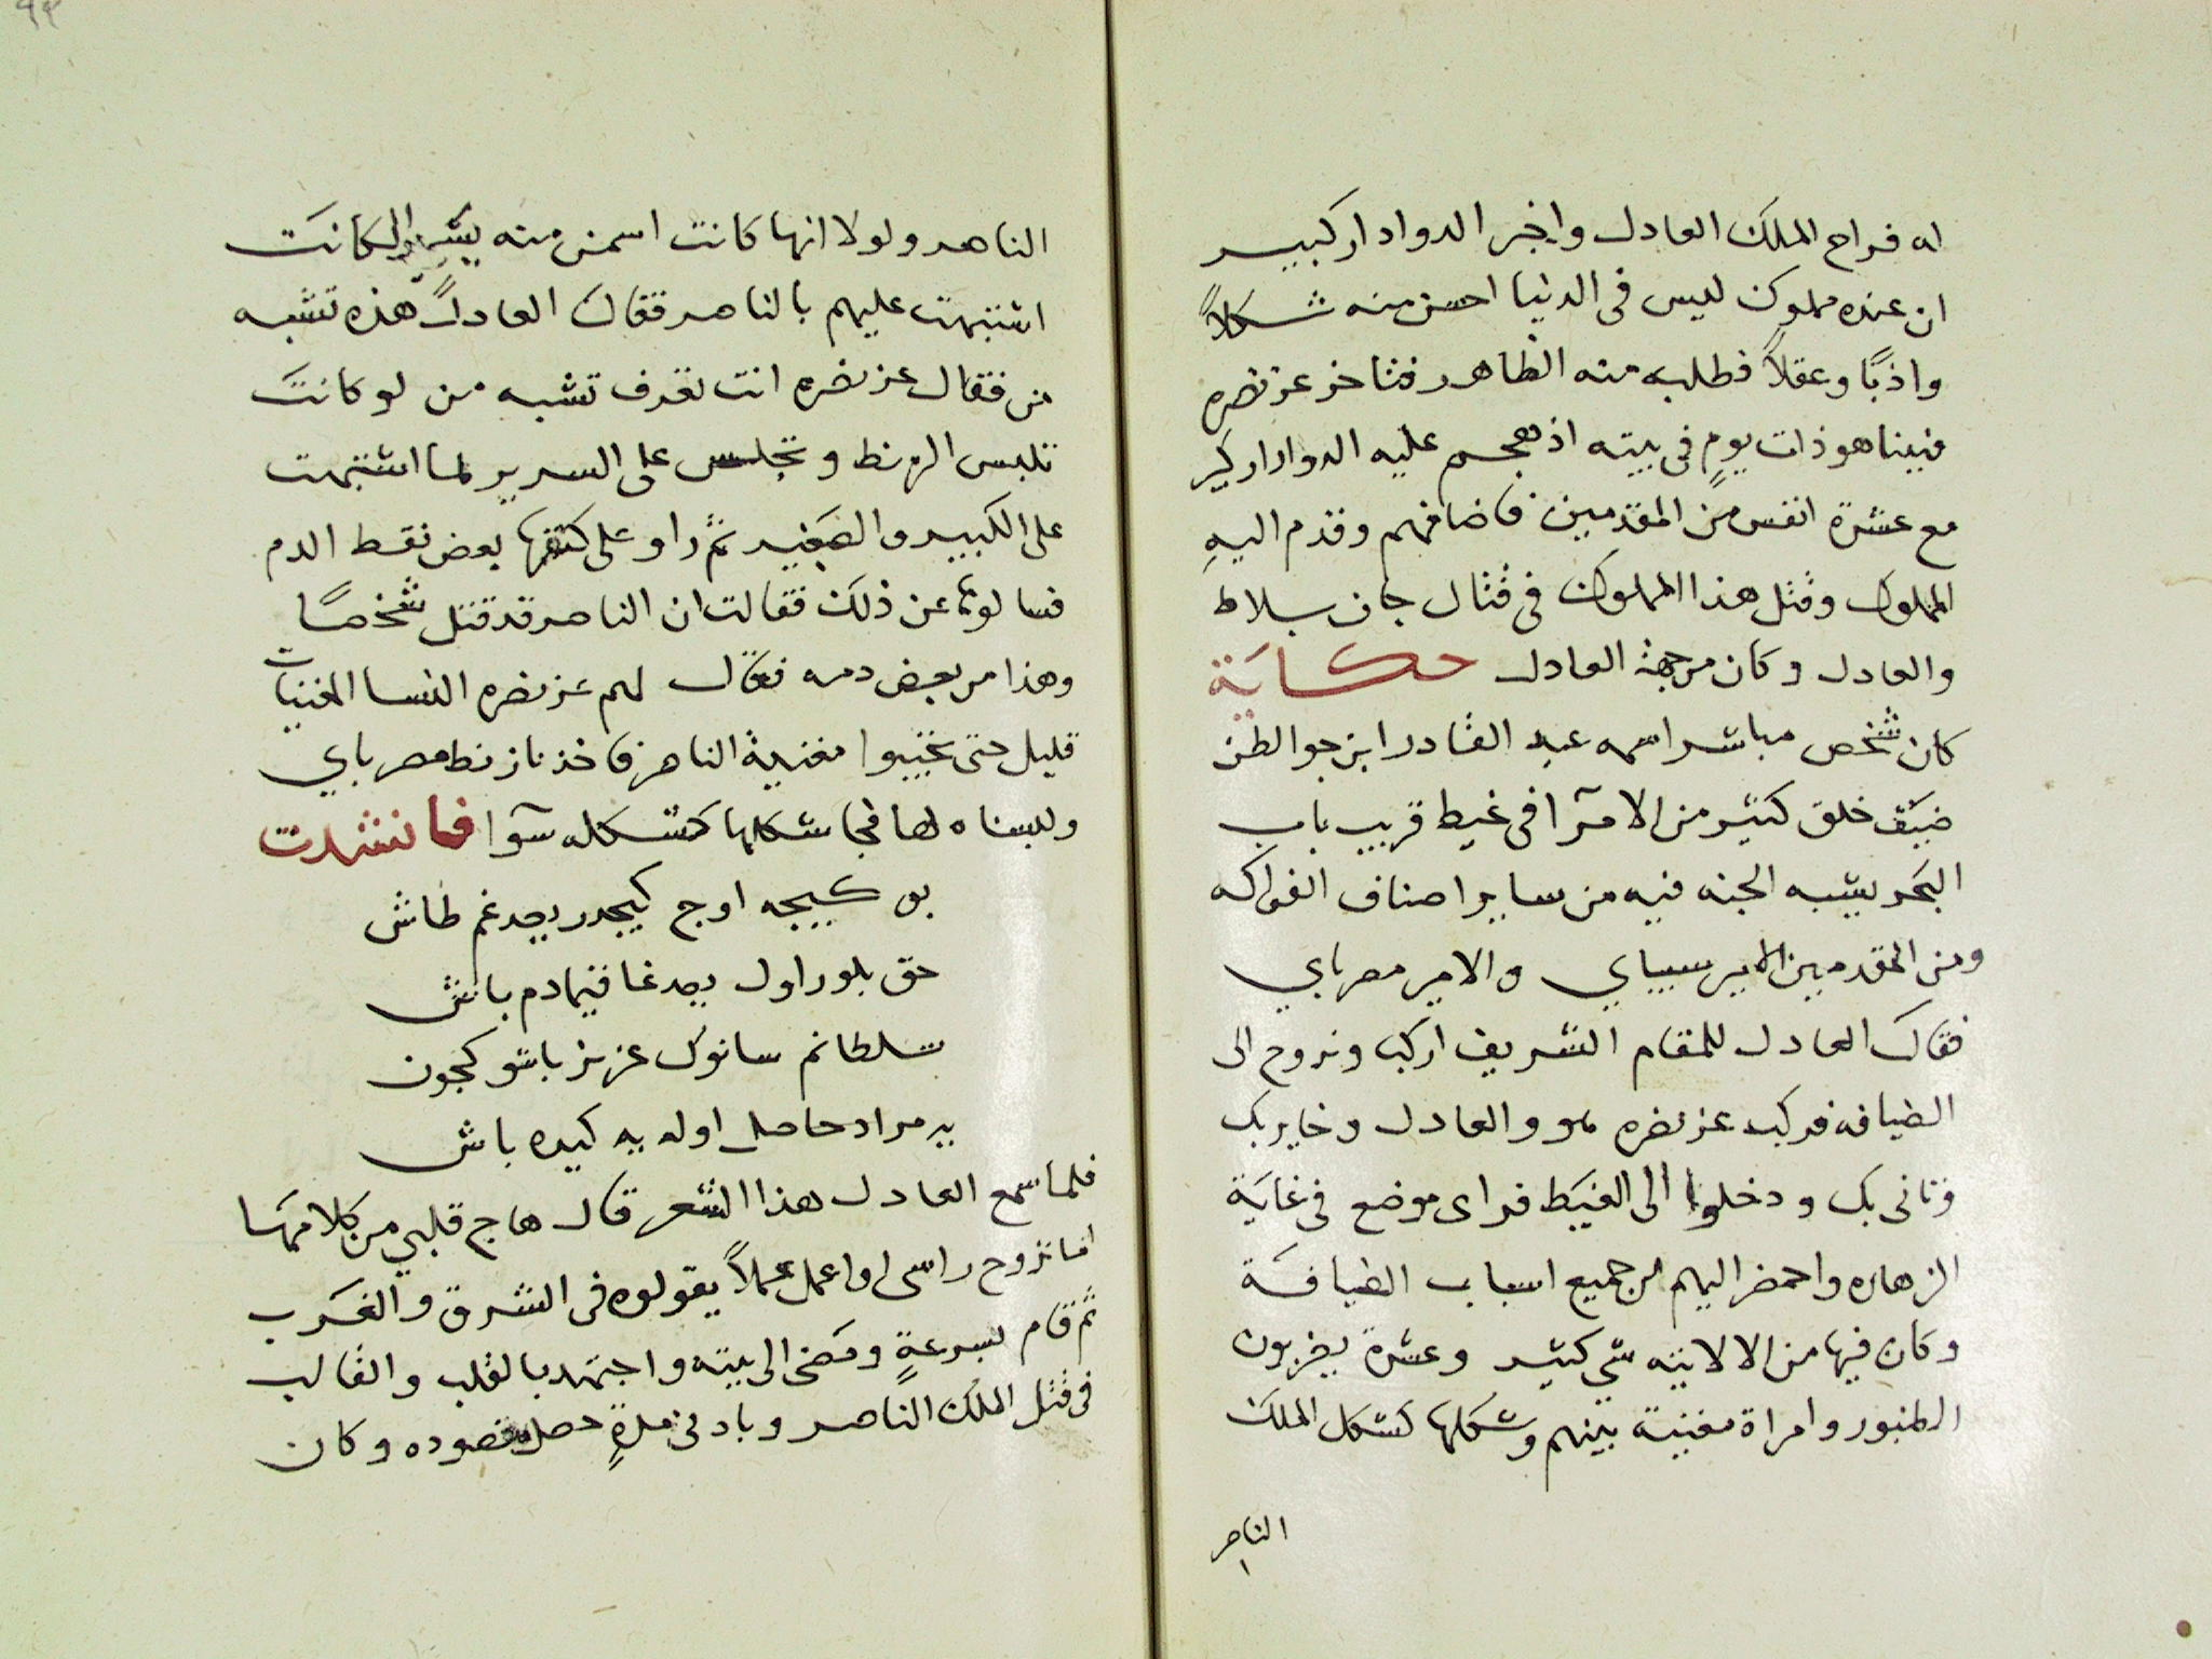 له فراح الملك العادل واخبر الدوادار كبير
ان عنده مملوك ليس فى الدنيا احسن منه شكلاً
واذبًا وعقلاً فطلبه منه الظاهر فتاخر عز نصره
فبينا هو ذات يومٍ فى بيته اذ هجم عليه الدوادار كبير
مع عشرة انفس من المقدمين فاضافهم وقدم اليهِ
المملوك وقتل هذا المملوك فى قتال جان بلاط
والعادل وكان من جهة العادل حكاية
كان شخص مباشر اسمه عبد القادر ابن جوالطن
ضيّف خلق كثير من الامرآ فى غيط قريب باب
البحر يشبه الجنه فيه من ساير اصناف الفواكه
ومن المقدمين الامير سيباي والامير مصرباي
فقال العادل للمقام الشريف اركب ونروح الى
الضيافه فركب عز نصره هو والعادل وخايربك
وتانى بك ودخلوا الى الغيط فراى موضع فى غاية
الزهاره واحضر اليهم من جميع اسباب الضيافة
وكان فيها من الالاتيه شي كثير وعشرة يضربون
الطنبور وامراة مغنية بينهم وشكلها كشكل الملك
الناصر
الناصر ولولا انها كانت اسمن منه بيسير والا لكانت
اشتبهت عليهم بالناصر فقال العادل هذه تشبه
من فقال عز نصره انت تعرف تشبه من لو كانت
تلبس الزنط وتجلس على السرير لما اشتبهت
على الكبير والصغير ثم راو على كتفها بعض نقط الدم
فسالوها عن ذلك فقالت ان الناصر قد قتل شخصًا
وهذا من بعض دمه فقال لهم عز نصره النسا المغنيات
قليل حتى تجيبوا مغنية الناصر فاخذنا زنط مصرباي
ولبسناه لها فجا شكلها كشكله سوآ فانشدت
بو كيجه اوج كيجدر يجدغم طاش
حق بلور اول يجدغا قيمادم باش
سلطانم سانوك عزيز باشو كجون
بر مراد حاصل اوله يه كيده باش
فلما سمع العادل هذا الشعر قال هاج قلبي من كلامها
اما تروح راسى او اعمل عملاً يقولوه فى الشرق والغرب
ثم قام بسرعةٍ ومضى الى بيته واجتهد بالقلب والقالب
فى قتل الملك الناصر وبادنى مدةٍ حصل مقصوده وكان